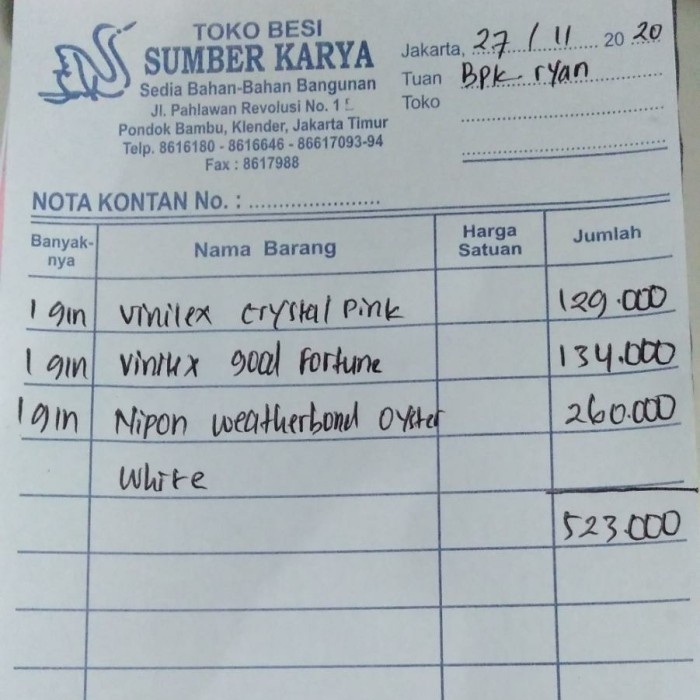 TOKO BESI
SUMBER KARYA
Sedia Bahan-Bahan Bangunan
Jl. Pahlawan Revolusi No. 1
Pondok Bambu, Klender, Jakarta Timur
Telp. 8616180 - 8616646 - 86617093-94
Fax : 8617988
Jakarta, 27 / 11 20 20
Tuan Bpk ryan
Toko
NOTA KONTAN No. :
Banyak-nya Nama Barang Harga Satuan Jumlah
1 gln vinilex crystal pink 129.000
1 gln goal Fortune 134.000
1 gln Nipon weatherbond Oyster 260.000
White
523.000